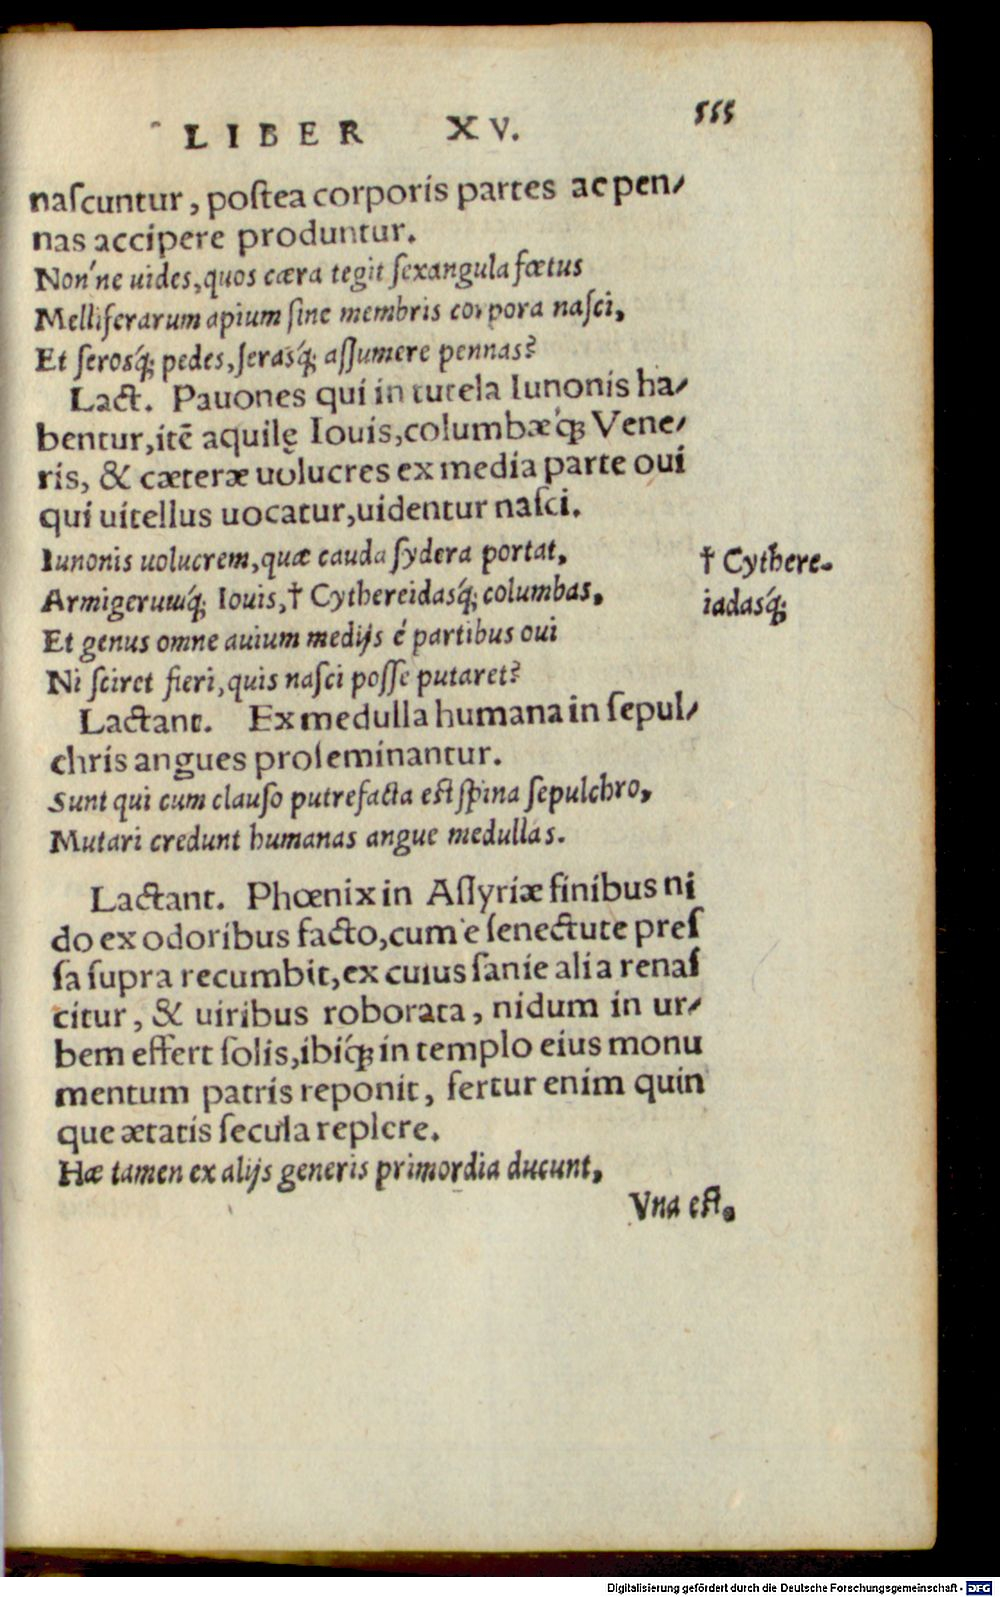 LIBER XV. 555
naſcuntur, poſtea corporis partes ac pen/
nas accipere produntur.
Non'ne uides, quos cæra tegit ſexangula fœtus
Melliferarum apium ſine membris corpora naſci,
Et ſerosq́; pedes, ſerasq́; aſſumere pennas?
Lact. Pauones qui in tutela Iunonis ha/
bentur, itẽ aquilę Iouis, columbæq́; Vene/
ris, & cæteræ uolucres ex media parte oui
qui uitellus uocatur, uidentur naſci.
Iunonis uolucrem, quæ cauda ſydera portat,
Armigerumq́; Iouis, † Cythereidasq́; columbas,
† Cythere-
iadasq́;
Et genus omne auium medijs é partibus oui
Ni ſciret fieri, quis naſci poſſe putaret?
Lactant. Ex medulla humana in ſepul/
chris angues proſeminantur.
Sunt qui cum clauſo putrefacta eſt ſpina ſepulchro,
Mutari credunt humanas angue medullas.
Lactant. Phœnix in Aſſyriæ finibus ni
do ex odoribus facto, cum è ſenectute preſ
ſa ſupra recumbit, ex cuius ſanie alia renaſ
citur, & uiribus roborata, nidum in ur/
bem effert ſolis, ibiq́; in templo eius monu
mentum patris reponit, fertur enim quin
que ætatis ſecula replere.
Hæ tamen ex alijs generis primordia ducunt,
Vna eſt,
Digitalisierung gefördert durch die Deutsche Forschungsgemeinschaft - DFG